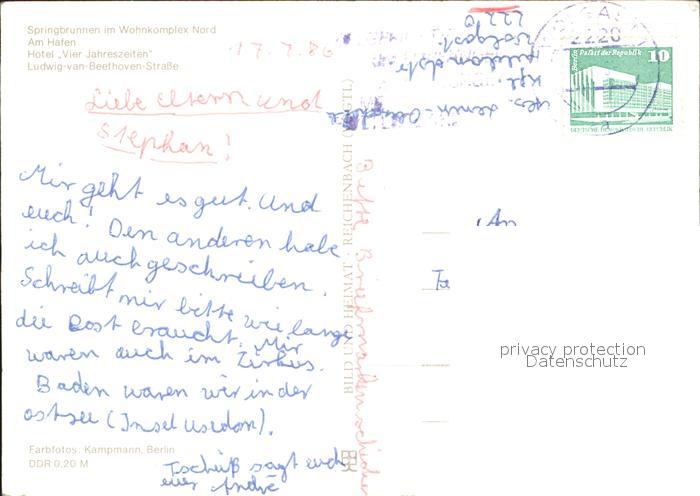 Springbrunnen im Wohnkomplex Nord
Am Hafen
Hotel „Vier Jahreszeiten"
Ludwig-van-Beethoven-Straße
17.7.86
Liebe Eltern und
Stephan!
Mir geht es gut. Und
euch! Den anderen habe
ich auch geschreiben.
Schreibt mir bitte wie lange
die Post braucht. Mir
waren auch im Zirkus.
Baden waren wir in der
ostsee (Insel usedom).
Tschüß sagt euch
euer André
Farbfotos: Kampmann, Berlin
DDR 0,20 M
BILD UND HEIMAT · REICHENBACH (VOGTL)
Bitte Briefmarken
2220
Wolgast
Berlin Palast der Republik
10
DEUTSCHE DEMOKRATISCHE REPUBLIK
An
Fa
privacy protection
Datenschutz